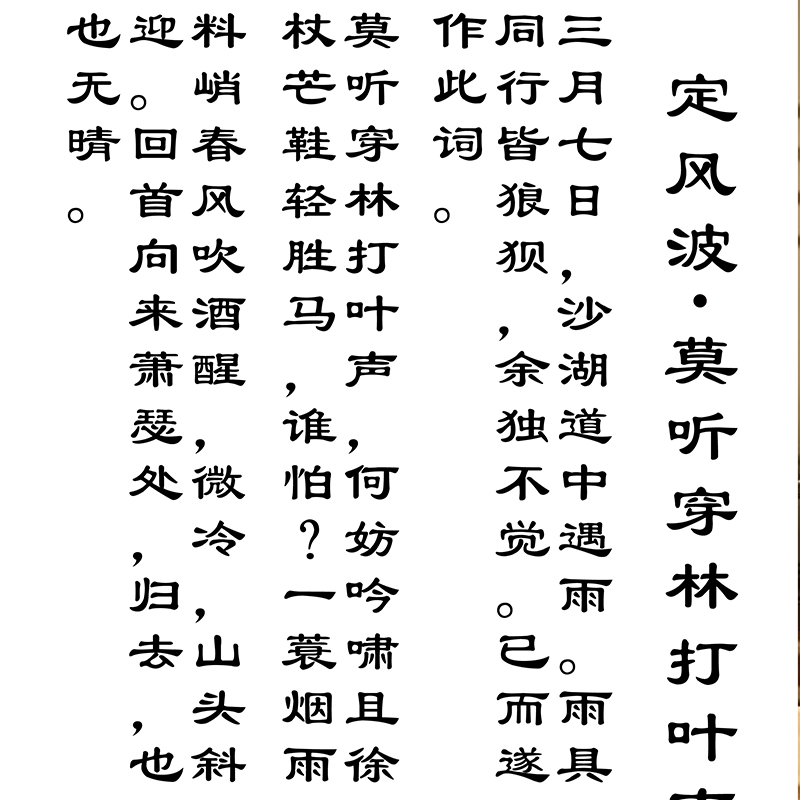 定风波·莫听穿林打叶
三月七日，沙湖道中遇雨。雨具
同行皆狼狈，余独不觉。已而遂
作此词。
莫听穿林打叶声，何妨吟啸且徐
杖芒鞋轻胜马，谁怕？一蓑烟雨
料峭春风吹酒醒，微冷，山头斜
迎。回首向来萧瑟处，归去，也
也无晴。